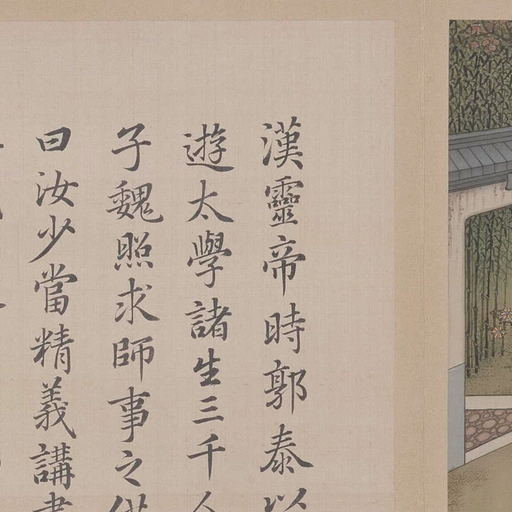 漢靈帝時郭泰以
遊太學諸生三千人
子魏照求師事之供
曰汝少當精義講書